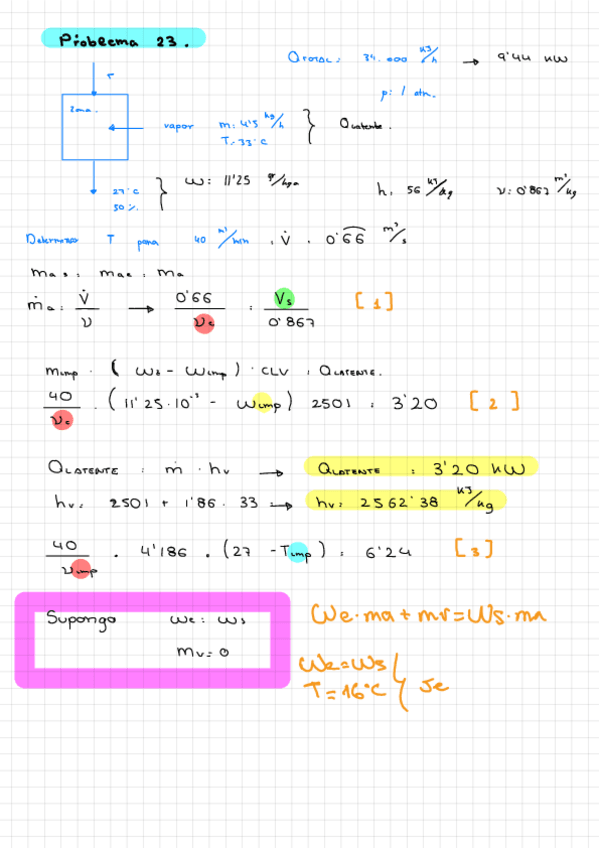 Problema 23.
QTOTAL: 34.000 kJ/h → 9'44 kW
p: 1 atm.
T
Zona.
vapor m: 4'5 kg/h } QLatente.
T: 33°C
27°C } w: 11'25 gr/kga h: 56 kJ/kg v: 0'867 m³/kg
50%.
Determinar T para 40 m³/min. V̇: 0'66 m³/s
mas: mae: ma
ṁa: V̇/v → 0'66/ve : Vs/0'867 [1]
mimp · (ws - wimp) · CLV : QLATENTE.
40/ve · (11'25·10⁻³ - wimp) 2501 : 3'20 [2]
QLATENTE : ṁ · hv → QLATENTE : 3'20 kW
hv: 2501 + 1'86 · 33 → hv: 2562'38 kJ/kg
40/vimp · 4'186 · (27 - Timp) : 6'24 [3]
Supongo we: ws
mv: 0
We·ma + mv = Ws·ma
We = Ws
T = 16°C } Je